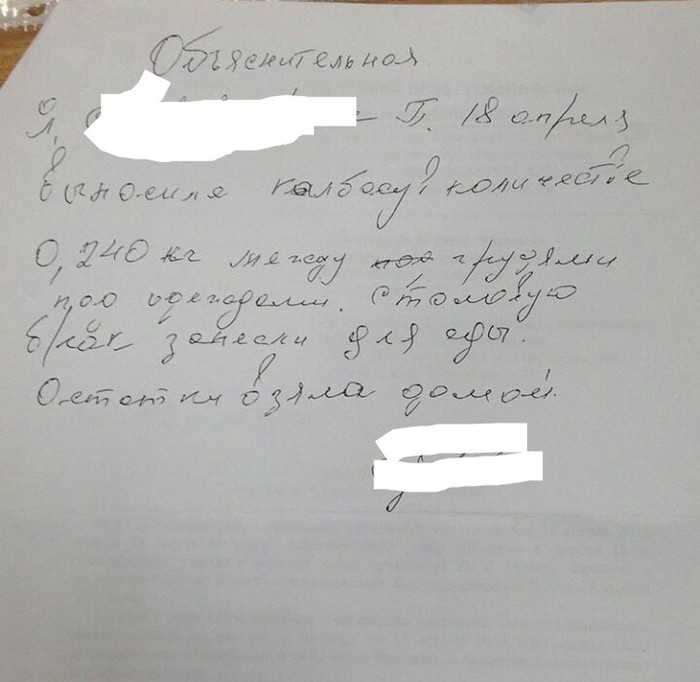 Объяснительная.
Я, П. 18 апреля
выносила колбасу в количестве
0,240 кг между грудями
под одеждами. столовую
брак занесли для еды.
Остатки взяла домой.